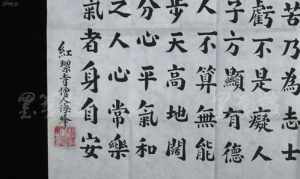 苦乃為志士
虧不是癡人
子方顯有德
人不算無能
步天高地闊
分心平氣和
之人心常樂
氣者身自安
紅螺寺僧人